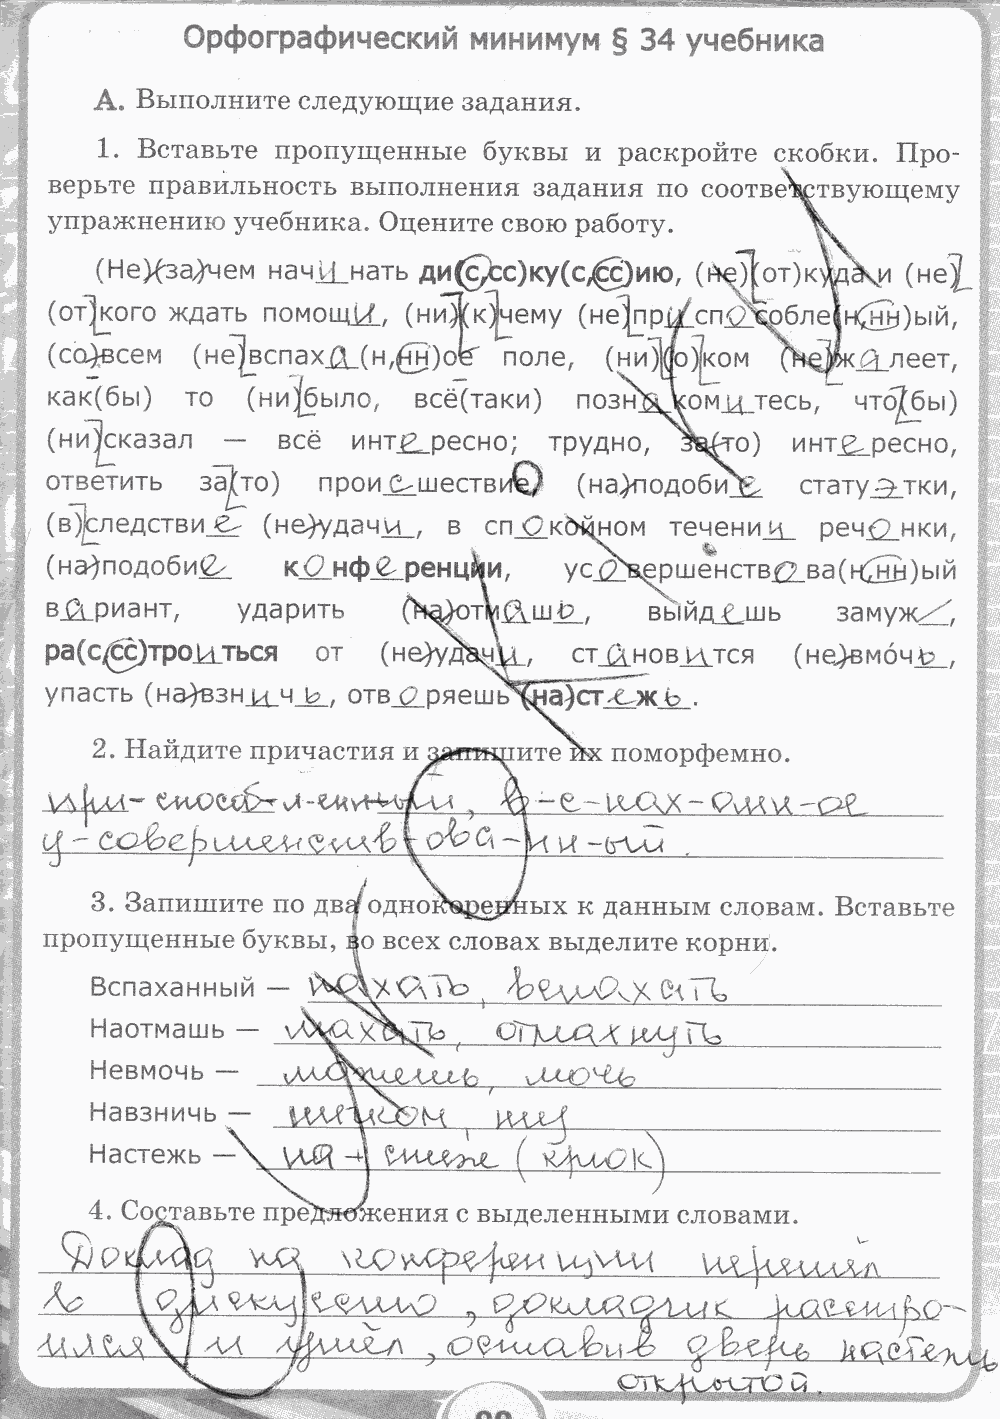 Орфографический минимум § 34 учебника
А. Выполните следующие задания.
1. Вставьте пропущенные буквы и раскройте скобки. Про-
верьте правильность выполнения задания по соответствующему
упражнению учебника. Оцените свою работу.
(Не)(за)чем начи_нать ди(с,сс)ку(с,сс)ию, (не)(от)куда и (не)
(от)кого ждать помощи_, (ни)(к)чему (не)при_спо_собле(н,нн)ый,
(со)всем (не)вспаха_(н,нн)ое поле, (ни)(о)ком (не)жа_леет,
как(бы) то (ни)было, всё(таки) позна_коми_тесь, что(бы)
(ни)сказал — всё инте_ресно; трудно, за(то) инте_ресно,
ответить за(то) проис_шествие, (на)подоби_е стату_э_тки,
(в)следстви_е (не)удачи_, в спо_койном течении_ речо_нки,
(на)подобие_ ко_нфе_ренции, усо_вершенство_ва(н,нн)ый
ва_риант, ударить (на)отма_шь_, выйде_шь замуж_,
ра(с,сс)трои_ться от (не)удачи_, ста_нови_тся (не)вмо́чь_,
упасть (на)взни_чь_, отво_ряешь (на)сте_жь_.
2. Найдите причастия и запишите их поморфемно.
при-способ-л-енн-ый, в-с-пах-анн-ое
у-совершенств-ова-нн-ый.
3. Запишите по два однокоренных к данным словам. Вставьте
пропущенные буквы, во всех словах выделите корни.
Вспаханный — пахать, вспахать
Наотмашь — махать, отмахнуть
Невмочь — можешь, мочь
Навзничь — ничком, ниц
Настежь — на + стеж (крюк)
4. Составьте предложения с выделенными словами.
Доклад на конференции перешёл
в дискуссию, докладчик расстро-
ился и ушёл, оставив дверь настежь
открытой.